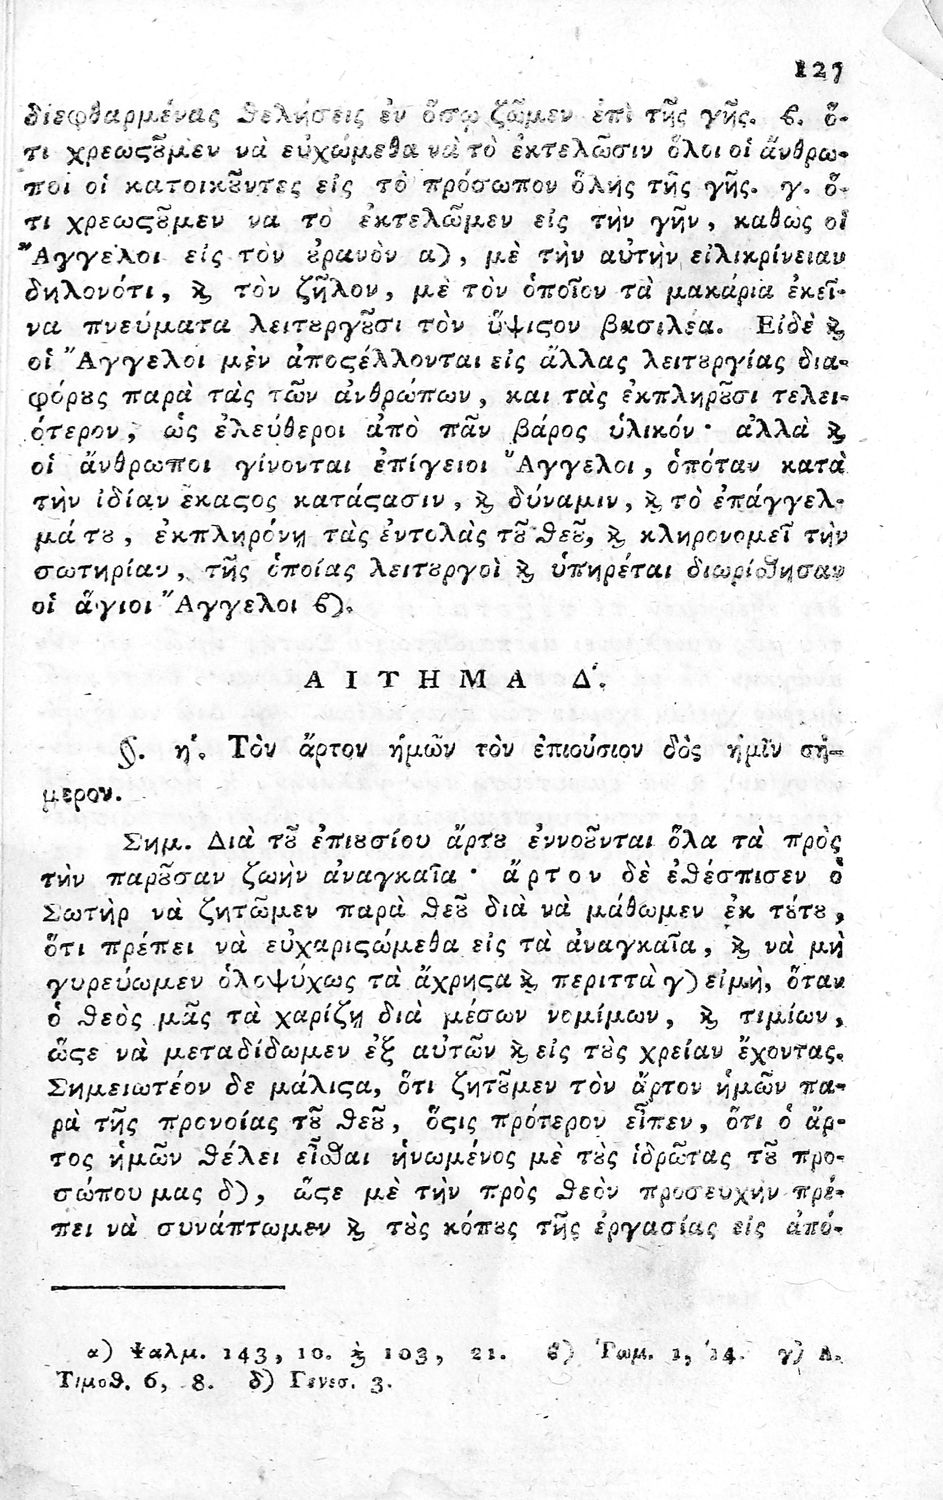 127
διεφθαρμένας θελήσεις ἐν ὅσῳ ζῶμεν ἐπὶ τῆς γῆς. ϐ. ὅ-
τι χρεωςȣ͂μεν νὰ εὐχώμεθα νὰ τὸ ἐκτελῶσιν ὅλοι οἱ ἄνθρω-
ποι οἱ κατοικȣ͂ντες εἰς τὸ πρόσωπον ὅλης τῆς γῆς. γ. ὅ-
τι χρεωςȣ͂μεν να τὸ ἐκτελῶμεν εἰς τὴν γῆν, καθὼς οἱ
Ἄγγελοι εἰς τὸν ȣ̓ρανὸν α), μὲ τὴν αὐτὴν εἰλικρίνειαν
δηλονότι, ϗ τὸν ζῆλον, μὲ τὸν ὁποῖον τὰ μακάρια ἐκεῖ-
να πνεύματα λειτȣργȣ͂σι τὸν ὕψιςον βασιλέα. Εἰδὲ ϗ
οἱ Ἄγγελοι μὲν ἀποςέλλονται εἰς ἄλλας λειτȣργίας δια-
φόρȣς παρὰ τὰς τῶν ἀνθρώπων, και τὰς ἐκπληρȣ͂σι τελει-
ότερον, ὡς ἐλεύθεροι ἀπὸ πᾶν βάρος ὑλικόν· ἀλλὰ ϗ
οἱ ἄνθρωποι γίνονται ἐπίγειοι Ἄγγελοι, ὁπόταν κατὰ
τὴν ἰδίαν ἕκαςος κατάςασιν, ϗ δύναμιν, ϗ τὸ ἐπάγγελ-
μά τȣ, ἐκπληρόνῃ τὰς ἐντολὰς τȣ͂ Θεȣ͂, ϗ κληρονομεῖ τὴν
σωτηρίαν, τῆς ὁποίας λειτȣργοὶ ϗ ὑπηρέται διωρίσθησαν
οἱ ἅγιοι Ἄγγελοι ϐ).
ΑΙΤΗΜΑ Δʹ.
§. ηʹ. Τὸν ἄρτον ἡμῶν τὸν ἐπιούσιον δὸς ἡμῖν σή-
μερον.
Σημ. Διὰ τȣ͂ ἐπιȣσίου ἄρτȣ ἐννοȣ͂νται ὅλα τὰ πρὸς
τὴν παρȣ͂σαν ζωὴν ἀναγκαῖα· ἄρτον δὲ ἐθέσπισεν ὁ
Σωτὴρ νὰ ζητῶμεν παρὰ Θεȣ͂ διὰ νὰ μάθωμεν ἐκ τȣ́τȣ,
ὅτι πρέπει νὰ εὐχαριςώμεθα εἰς τὰ ἀναγκαῖα, ϗ νὰ μὴ
γυρεύωμεν ὁλοψύχως τὰ ἄχρηςα ϗ περιττὰ γ) εἰμὴ, ὅταν
ὁ Θεὸς μᾶς τὰ χαρίζῃ διὰ μέσων νομίμων, ϗ τιμίων,
ὥςε νὰ μεταδίδωμεν ἐξ αὐτῶν ϗ εἰς τȣ̀ς χρείαν ἔχοντας.
Σημειωτέον δε μάλιςα, ὅτι ζητȣ͂μεν τὸν ἄρτον ἡμῶν πα-
ρὰ τῆς προνοίας τȣ͂ Θεȣ͂, ὅςις πρότερον εἶπεν, ὅτι ὁ ἄρ-
τος ἡμῶν θέλει εἶσθαι ἡνωμένος μὲ τȣ̀ς ἱδρῶτας τȣ͂ προ-
σώπου μας δ), ὥςε μὲ τὴν πρὸς Θεὸν προσευχὴν πρέ-
πει νὰ συνάπτωμεν ϗ τȣ̀ς κόπȣς τῆς ἐργασίας εἰς ἀπό-
α) Ψαλμ. 143, 10. ϗ 103, 21. ϐ) Ῥωμ. 1, 14. γ) Α.
Τιμοθ. 6, 8. δ) Γενεσ. 3.